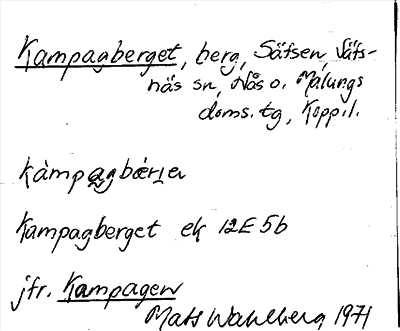 Kampagberget, berg, Säfsen, Säfs-
näs sn, Nås o. Malungs
doms. tg, Kopp.l.
Kampagberget ek 12E5b
jfr. Kampagen
Mats Wahlberg 1971